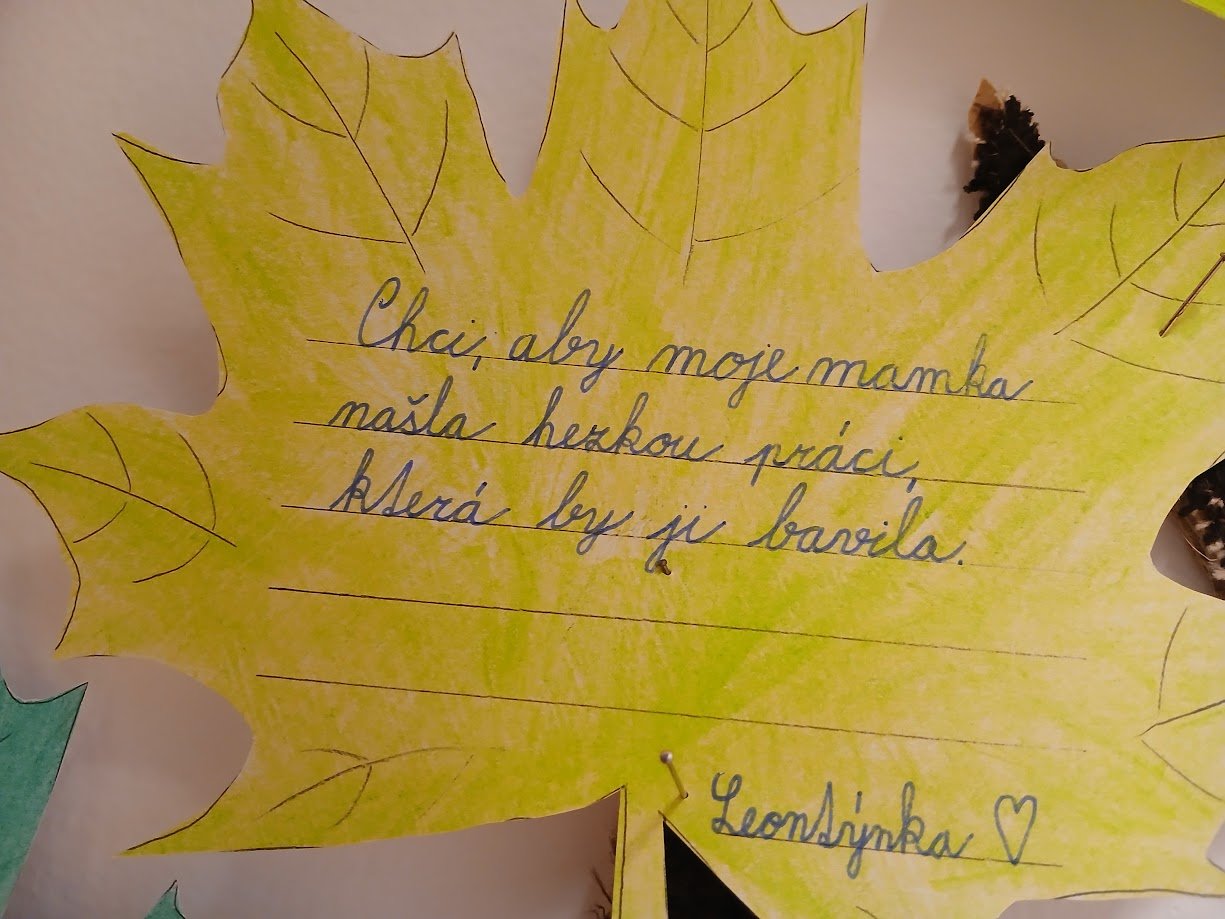 Chci, aby moje mamka
našla hezkou práci,
která by ji bavila.
Leontýnka ♡